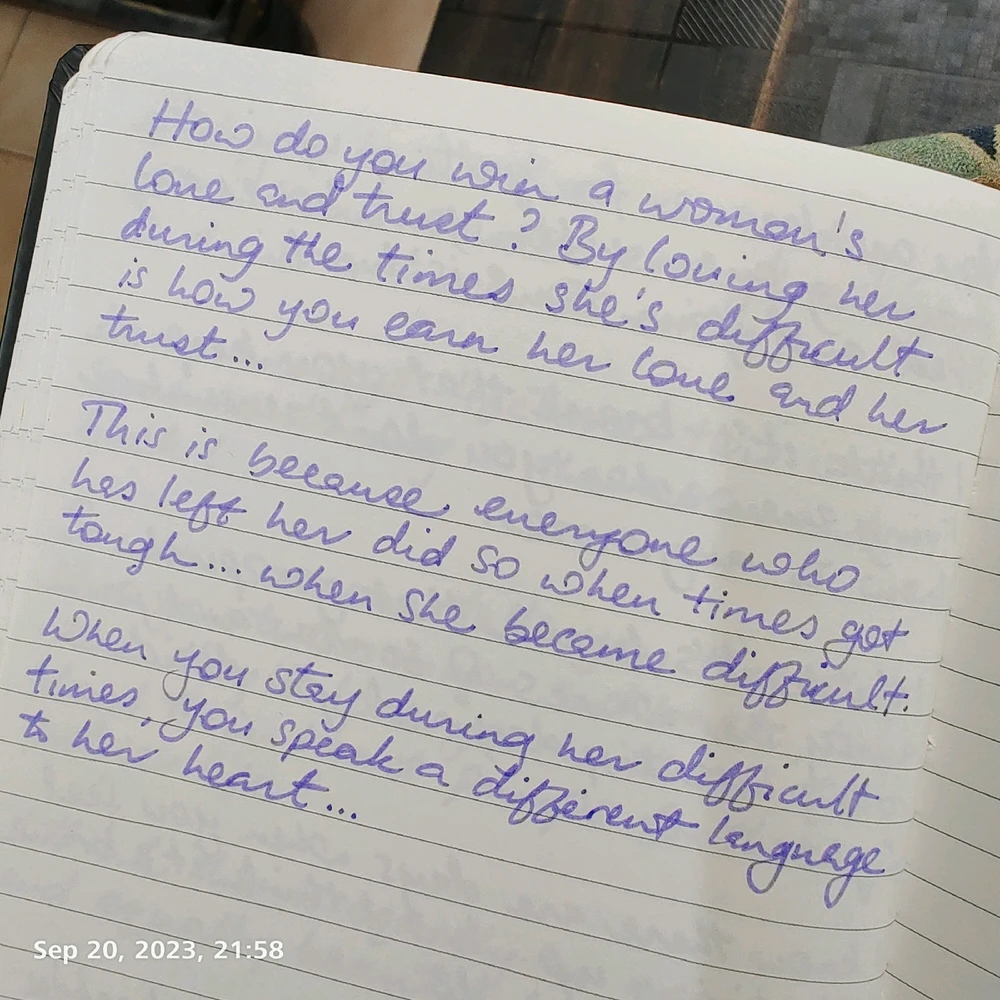 How do you win a woman's
love and trust? By loving her
during the times she's difficult
is how you earn her love and her
trust...
This is because everyone who
has left her did so when times got
tough... when she became difficult.
When you stay during her difficult
times, you speak a different language
to her heart...
Sep 20, 2023, 21:58